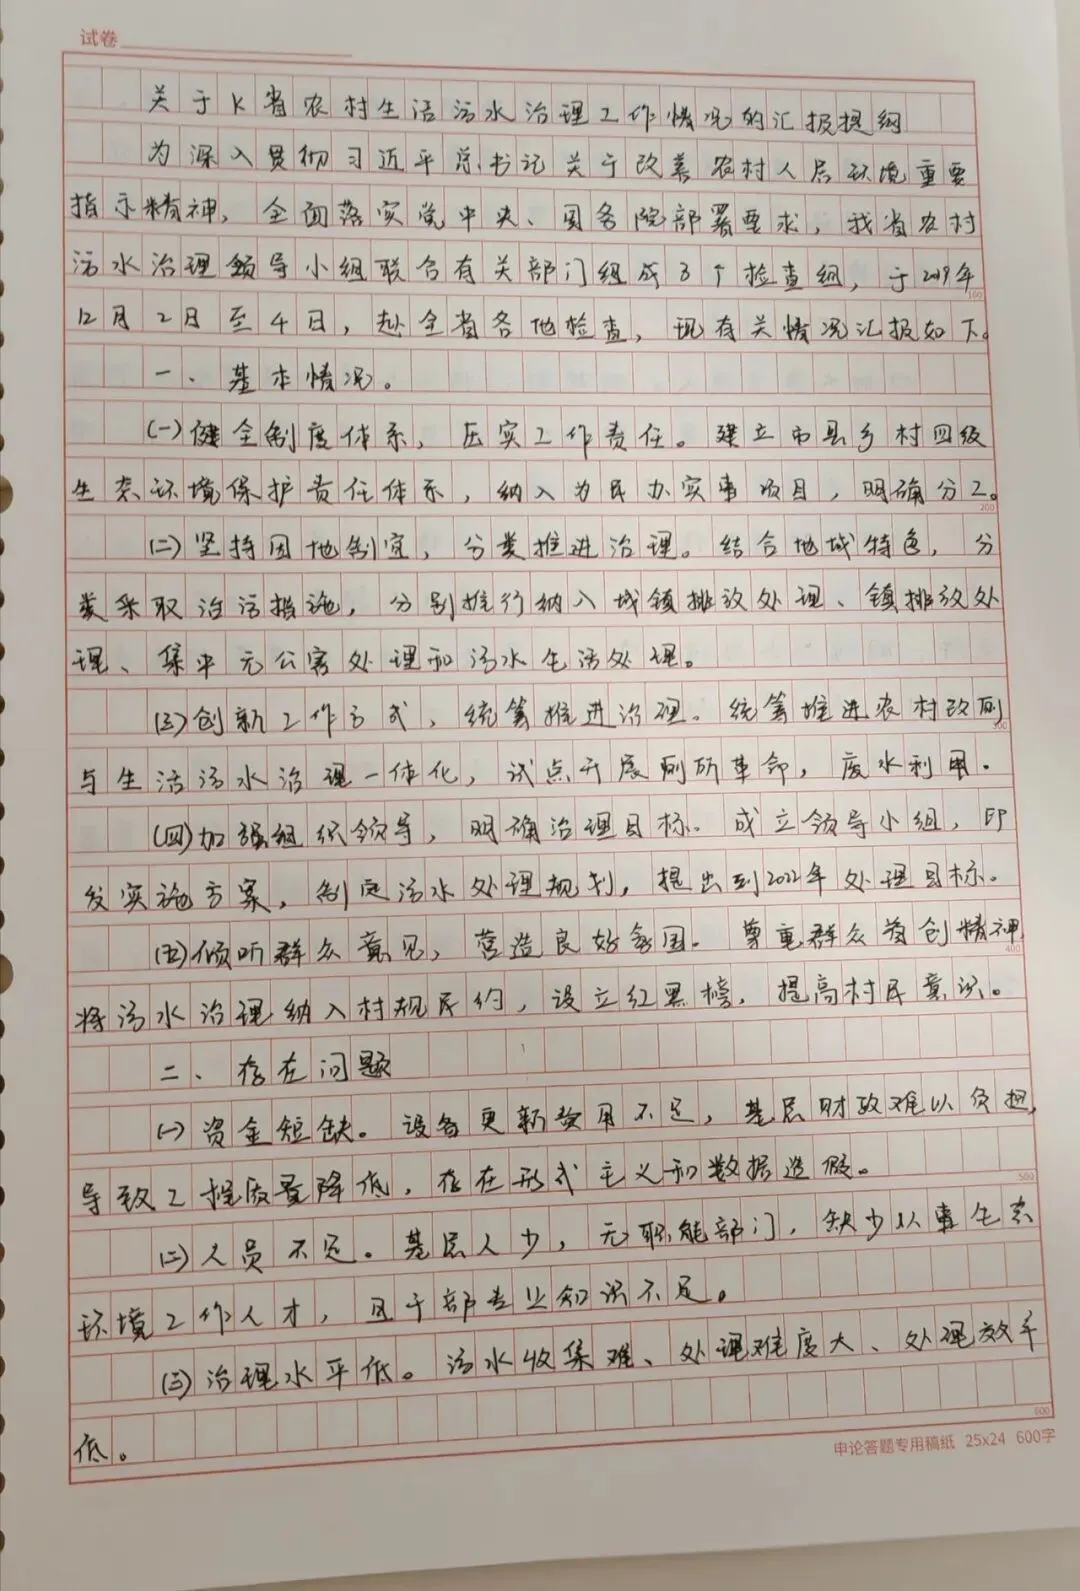 试卷
关于K省农村生活污水治理工作情况的汇报提纲
为深入贯彻习近平总书记关于改善农村人居环境重要
指示精神，全面落实党中央、国务院部署要求，我省农村
污水治理领导小组联合有关部门组成3个检查组，于2019年
100
12月2日至4日，赴全省各地检查，现有关情况汇报如下。
一、基本情况。
(一)健全制度体系，压实工作责任。建立市县乡村四级
生态环境保护责任体系，纳入为民办实事项目，明确分工。
200
(二)坚持因地制宜，分类推进治理。结合地域特色，分
类采取治污措施，分别推行纳入城镇排放处理、镇排放处
理、集中无公害处理和污水生活处理。
(三)创新工作方式，统筹推进治理。统筹推进农村改厕
300
与生活污水治理一体化，试点开展厕所革命，废水利用。
(四)加强组织领导，明确治理目标。成立领导小组，印
发实施方案，制定污水处理规划，提出到2022年处理目标。
(五)倾听群众意见，营造良好氛围。尊重群众首创精神
400
将污水治理纳入村规民约，设立红黑榜，提高村民意识。
二、存在问题
(一)资金短缺。设备更新费用不足，基层财政难以负担，
导致工程质量降低，存在形式主义和数据造假。
500
(二)人员不足。基层人少，无职能部门，缺少从事生态
环境工作人才，且干部专业知识不足。
(三)治理水平低。污水收集难、处理难度大、处理效率
低。
600
申论答题专用稿纸 25x24 600字